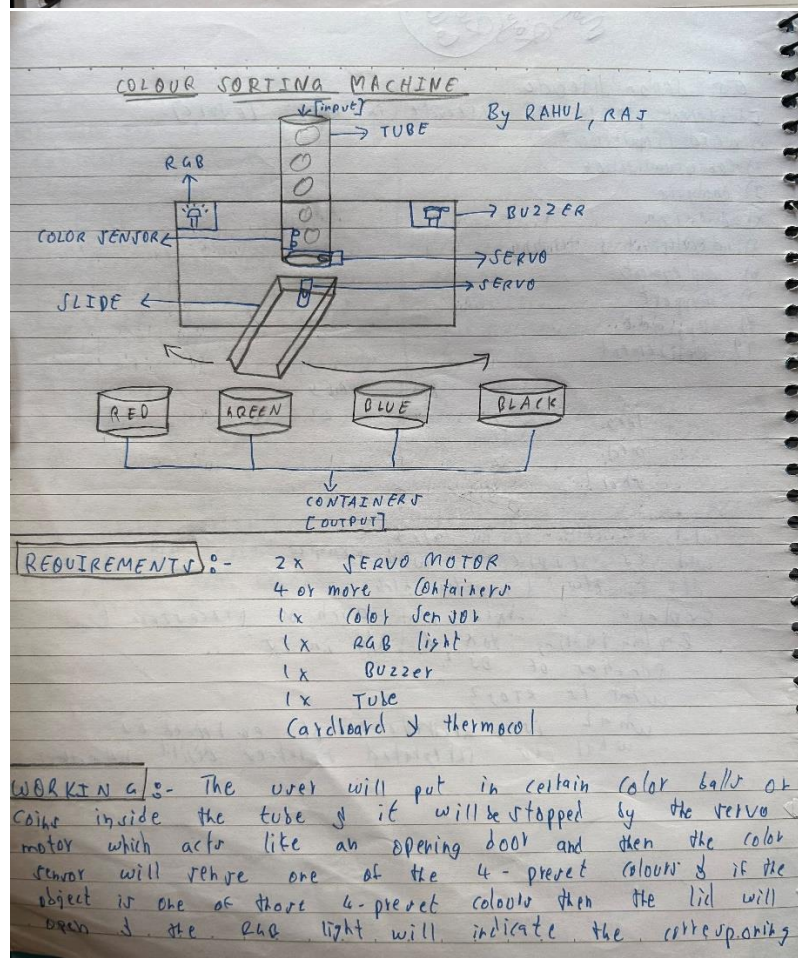 COLOUR SORTING MACHINE
[input]
By RAHUL, RAJ
TUBE
RGB
BUZZER
COLOR SENSOR
SERVO
SERVO
SLIDE
RED GREEN BLUE BLACK
CONTAINERS
[OUTPUT]
REQUIREMENTS :- 2 x SERVO MOTOR
4 or more Containers
1 x Color Sensor
1 x RGB light
1 x Buzzer
1 x Tube
Cardboard & thermocol
WORKING :- The user will put in certain color balls or
coins inside the tube & it will be stopped by the servo
motor which acts like an opening door and then the color
sensor will sense one of the 4 - preset colours & if the
object is one of those 4 - preset colours then the lid will
open & the RGB light will indicate the corresponing